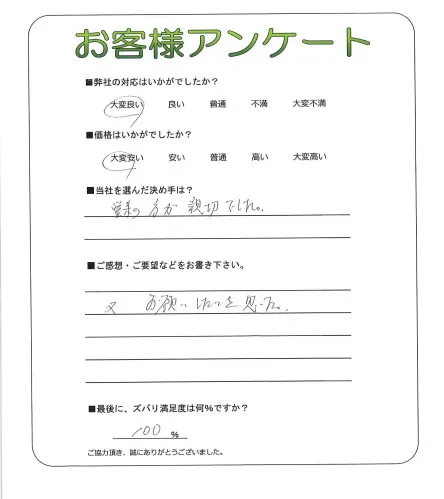 お客様アンケート
■弊社の対応はいかがでしたか?
大変良い 良い 普通 不満 大変不満
■価格はいかがでしたか?
大変安い 安い 普通 高い 大変高い
■当社を選んだ決め手は?
の方が親切でした。
■ご感想・ご要望などをお書き下さい。
又 お願いしたいと思った。
■最後に、ズバリ満足度は何%ですか?
100 %
ご協力頂き、誠にありがとうございました。